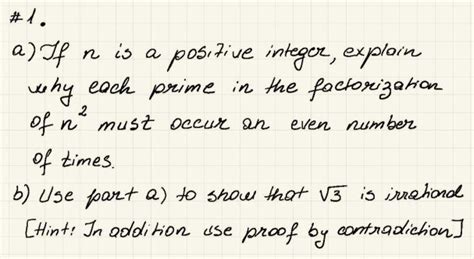 #1.
a) If n is a positive integer, explain
why each prime in the factorization
of n² must occur an even number
of times.
b) Use part a) to show that √3 is irrational
[Hint: In addition use proof by contradiction]